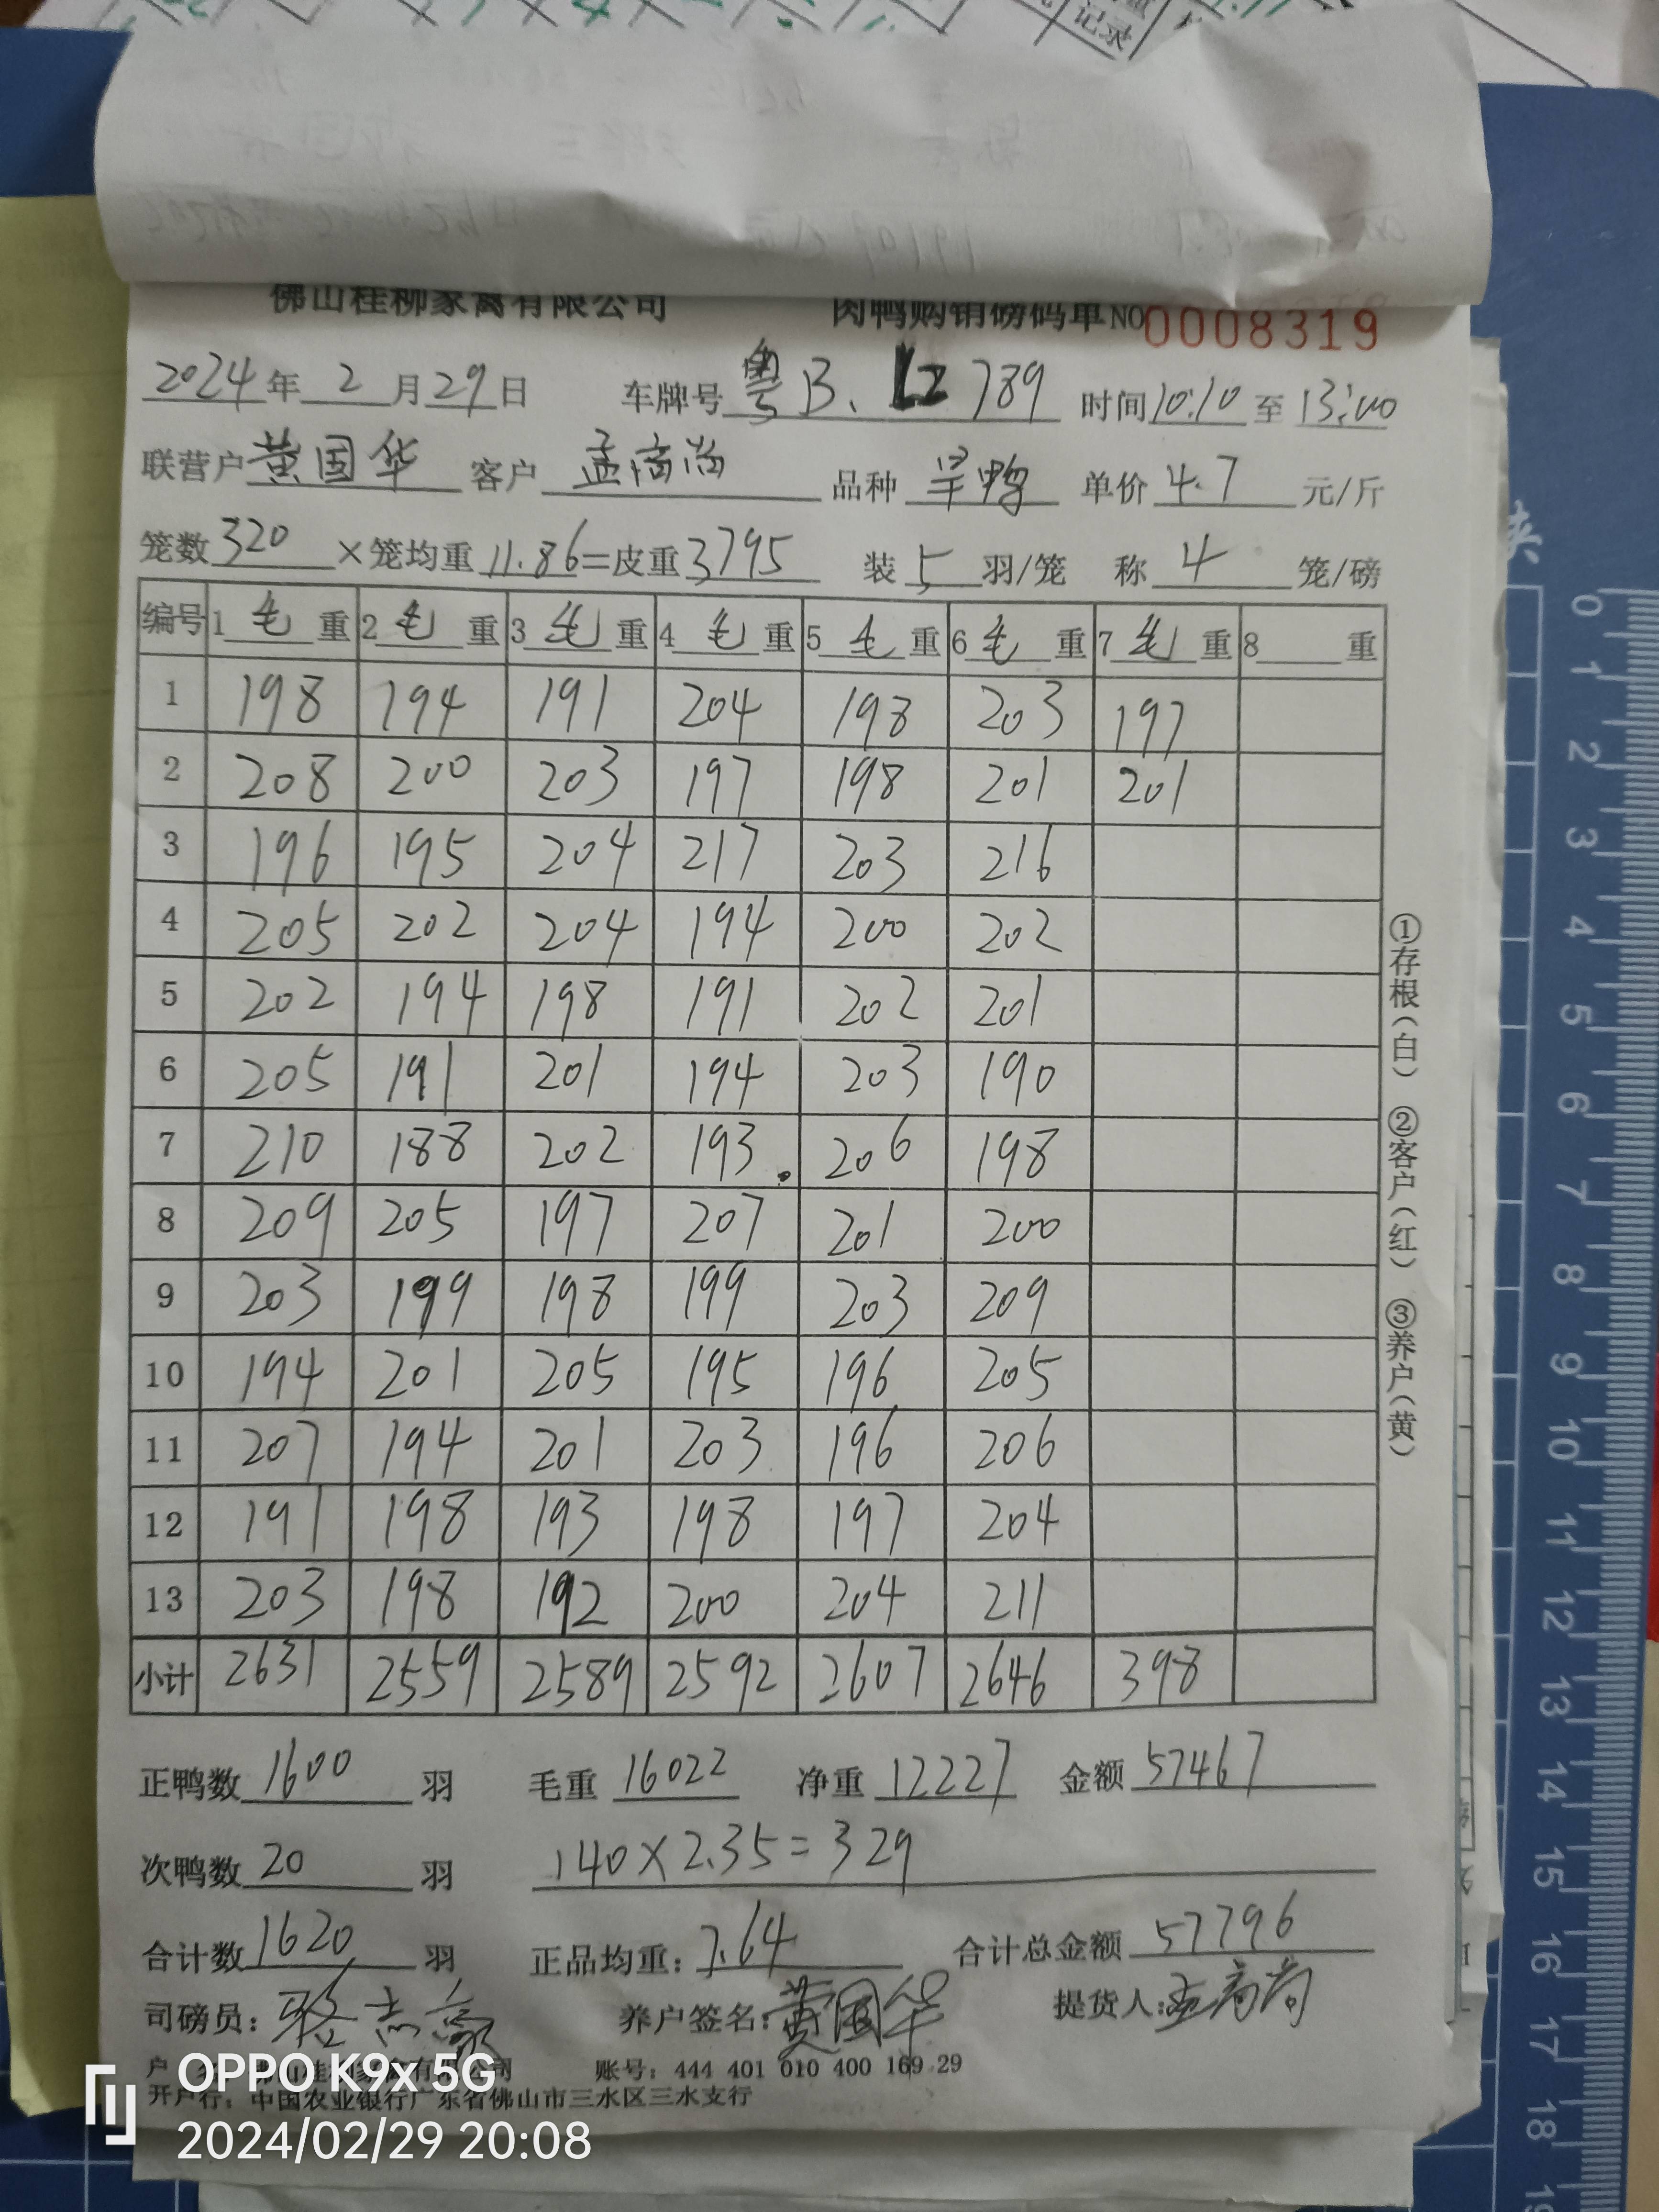 记录
佛山桂柳家禽有限公司 肉鸭购销磅码单 NO 0008319
2024年 2月29日 车牌号 粤B. 789 时间 10:10 至 13:00
联营户 黄国华 客户 孟高尚 品种 单价 4.7 元/斤
笼数 320 ×笼均重 11.86=皮重 3795 装 5 羽/笼 称 4 笼/磅
编号 1 毛 重 2 毛 重 3 毛 重 4 毛 重 5 毛 重 6 毛 重 7 毛 重 8 重
1 198 194 191 204 198 203 197
2 208 200 203 197 198 201 201
3 196 195 204 217 203 216
4 205 202 204 194 200 202
5 202 194 198 191 202 201
6 205 191 201 194 203 190
7 210 188 202 193. 206 198
8 209 205 197 207 201 200
9 203 199 198 199 203 209
10 194 201 205 195 196 205
11 207 194 201 203 196 206
12 191 198 193 198 197 204
13 203 198 192 200 204 211
小计 2631 2559 2589 2592 2607 2646 398
①存根(白) ②客户(红) ③养户(黄)
正鸭数 1600 羽 毛重 16022 净重 12227 金额 57467
次鸭数 20 羽 140×2.35=329
合计数 1620 羽 正品均重: 7.64 合计总金额 57796
司磅员: 骆志豪 养户签名: 黄国华 提货人: 孟高尚
户 佛山桂柳家禽有限公司 账号: 444 401 010 400 169 29
开户行: 中国农业银行广东省佛山市三水区三水支行
OPPO K9x 5G
2024/02/29 20:08
0 1 2 3 4 5 6 7 8 9 10 11 12 13 14 15 16 17 18 19